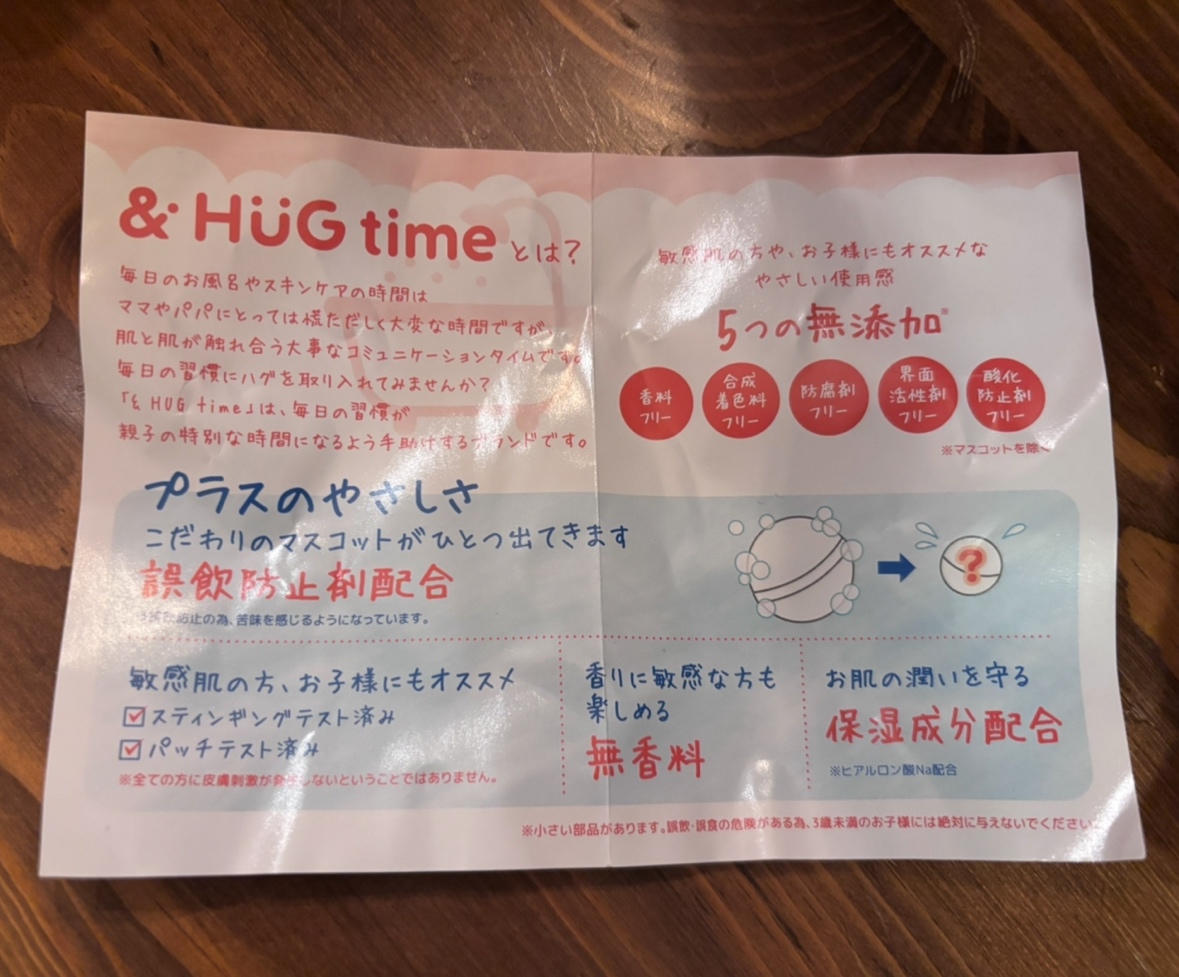 & HÜG time とは?
毎日のお風呂やスキンケアの時間は
ママやパパにとっては慌ただしく大変な時間ですが、
肌と肌が触れ合う大事なコミュニケーションタイムです。
毎日の習慣にハグを取り入れてみませんか?
「& HUG time」は、毎日の習慣が
親子の特別な時間になるよう手助けするブランドです。
敏感肌の方や、お子様にもオススメな
やさしい使用感
5つの無添加※
香料
フリー
合成
着色料
フリー
防腐剤
フリー
界面
活性剤
フリー
酸化
防止剤
フリー
※マスコットを除く
プラスのやさしさ
こだわりのマスコットがひとつ出てきます
誤飲防止剤配合
防止の為、苦味を感じるようになっています。
?
敏感肌の方、お子様にもオススメ
スティンギングテスト済み
パッチテスト済み
※全ての方に皮膚刺激が発生しないということではありません。
香りに敏感な方も
楽しめる
無香料
お肌の潤いを守る
保湿成分配合
※ヒアルロン酸Na配合
※小さい部品があります。誤飲・誤食の危険がある為、3歳未満のお子様には絶対に与えないでください。